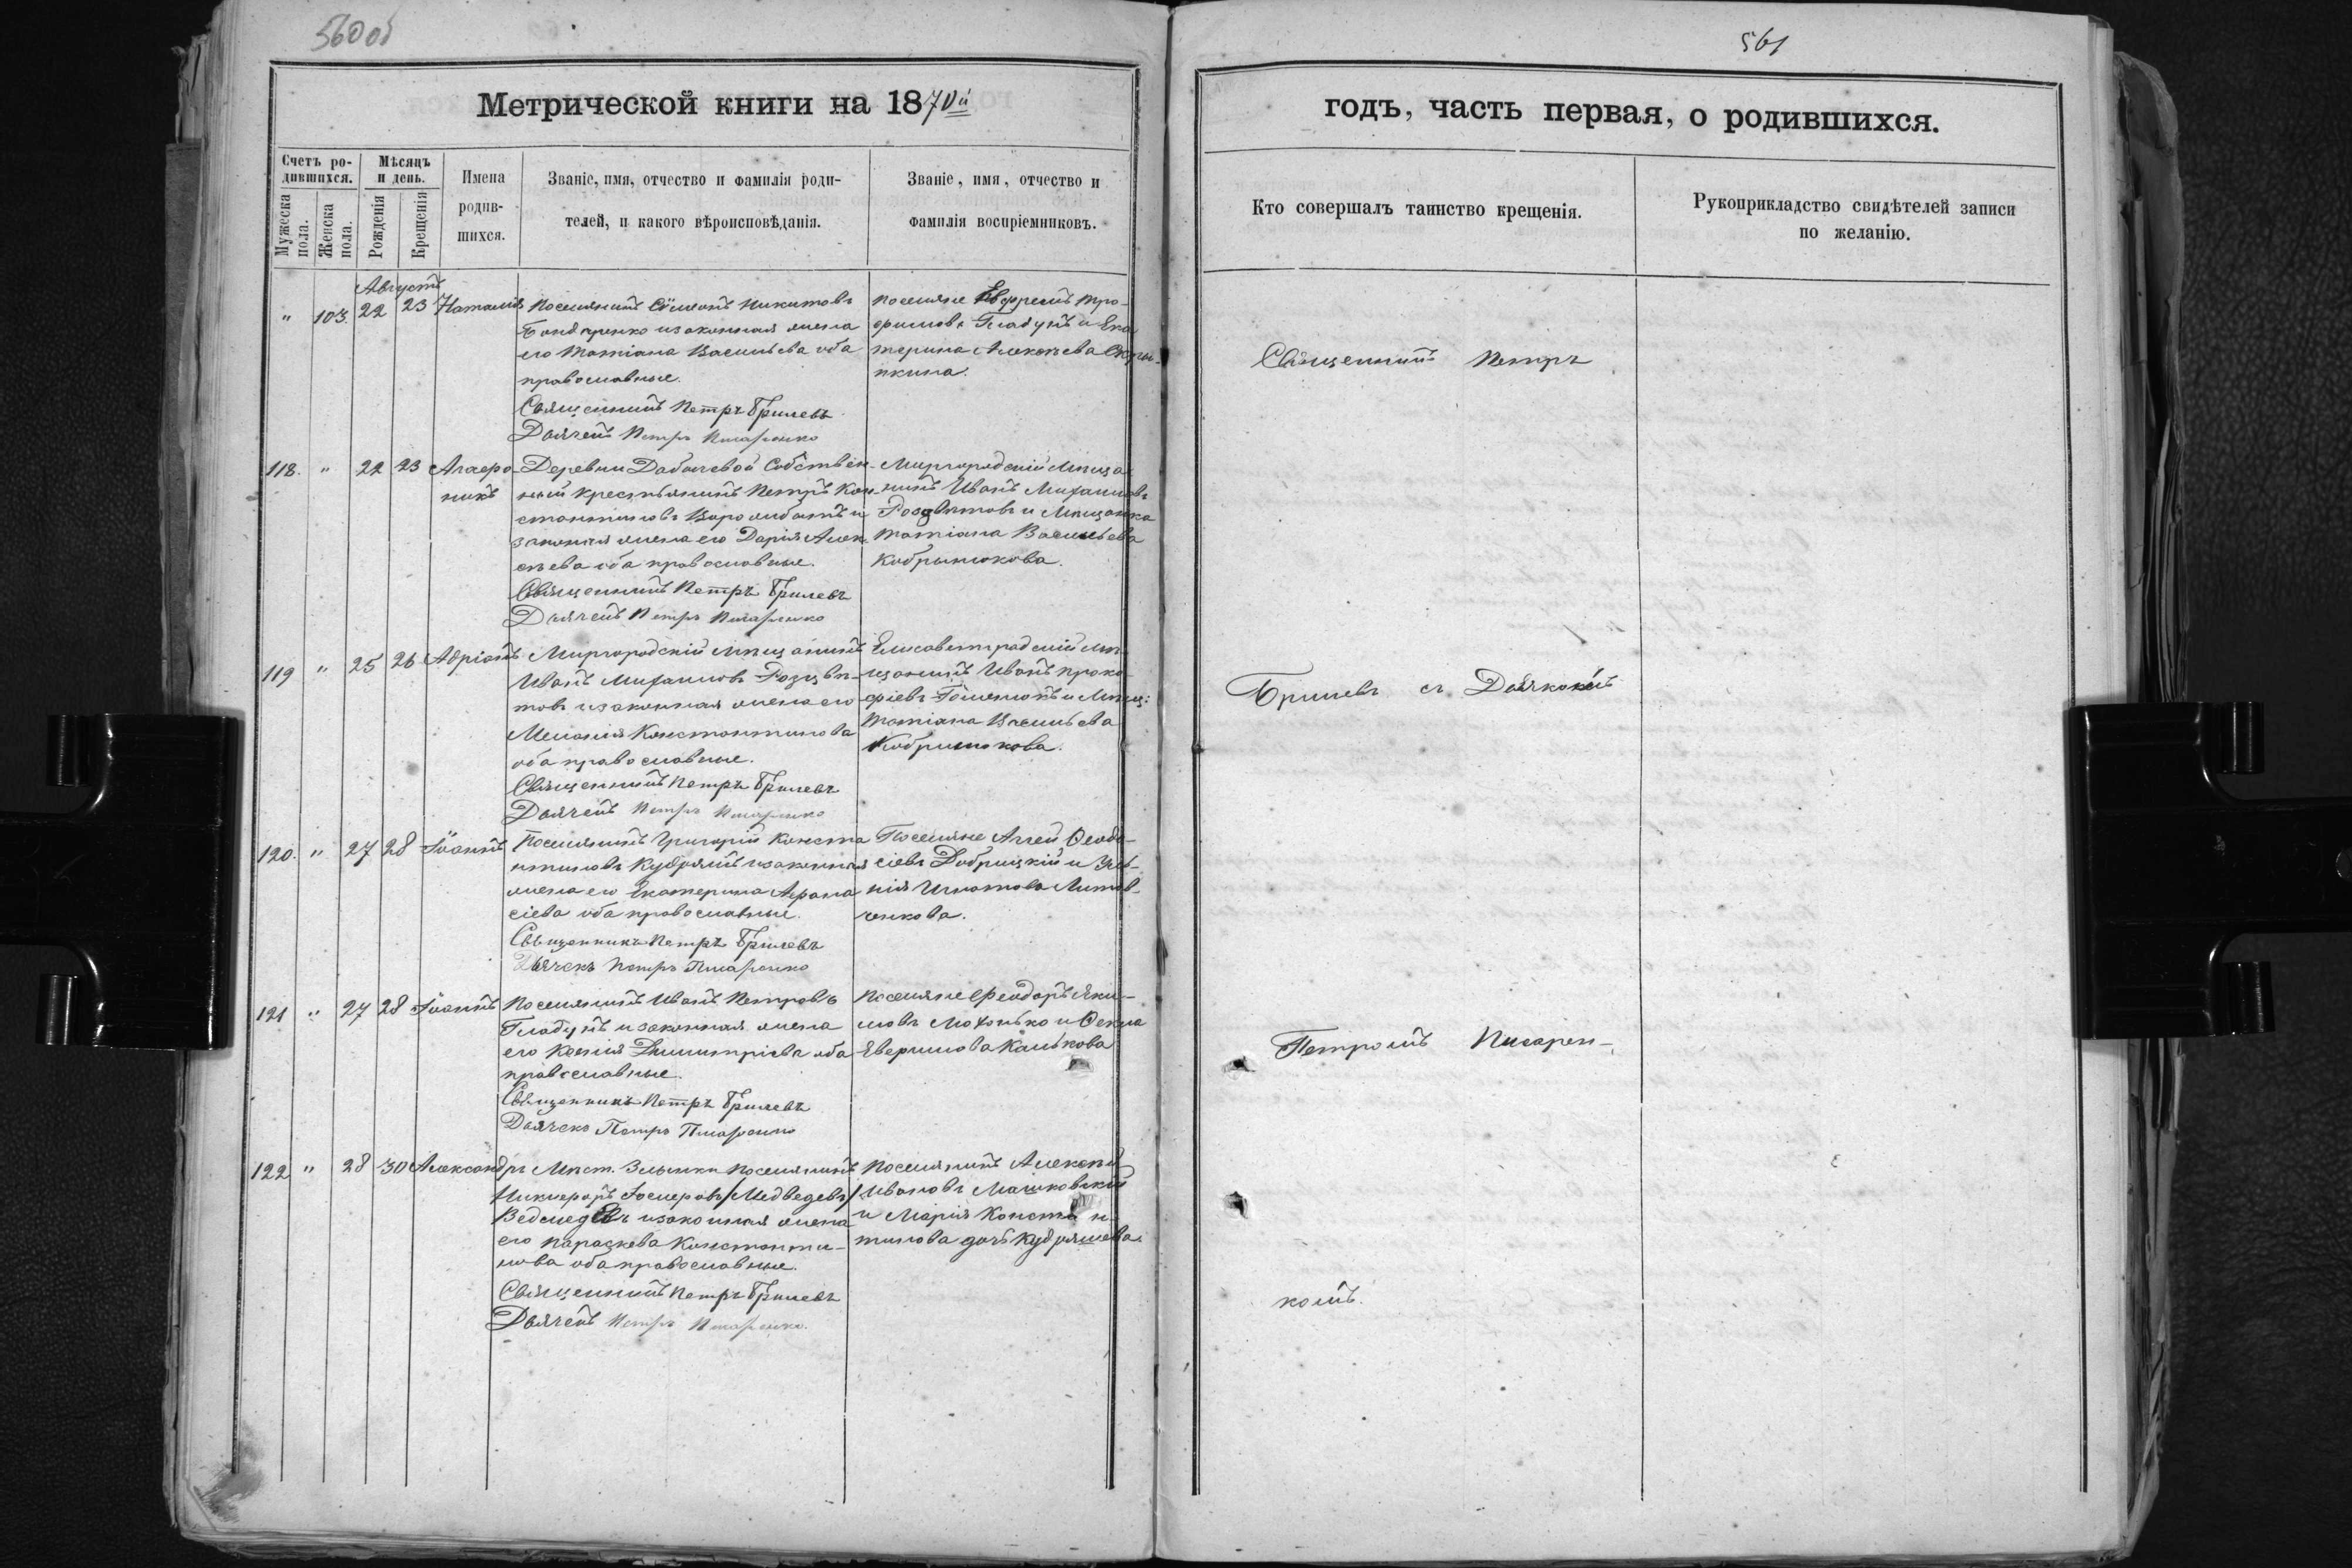 560 об
561
Метрической книги на 1870й
годъ, часть первая, о родившихся.
Счетъ ро-
дившихся.
Мужеска пола.
Женска пола.
Мѣсяцъ
и день.
Рожденія
Крещенія
Имена
родив-
шихся.
Званіе, имя, отчество и фамилія роди-
телей, и какого вѣроисповѣданія.
Званіе, имя, отчество и
фамилія воспріемниковъ.
Кто совершалъ таинство крещенія.
Рукоприкладство свидѣтелей записи
по желанію.
Августъ
" 103. 22 23 Наталія
Поселянинъ Симеонъ Никитовъ
Бондаренко и законная жена
его Татіана Васильева оба
православные.
Священникъ Петръ Бршевъ
Дьячекъ Петръ Писаренко
поселяне Евфремъ Тро-
фимовъ Гладунъ и Ека
терина Алексѣева Скры-
пкина.
118. " 22 23 Агафо-
никъ
Деревни Добычевой Собствен-
ный крестьянинъ Петръ Кон-
стантиновъ Ворожбитъ и
законная жена его Дарія Алек
сѣева оба православные.
Священникъ Петръ Бршевъ
Дьячекъ Петръ Писаренко
Миргородскій Мѣща
нинъ Иванъ Михаиловъ
Розцвѣтовъ и Мѣщанка
Татіана Васильева
Кобрынюкова.
119 " 25 26 Адріанъ
Миргородскій Мѣщанинъ
Иванъ Михаиловъ Розцвѣ-
товъ и законная жена его
Меланія Константинова
оба православные.
Священникъ Петръ Бршевъ
Дьячекъ Петръ Писаренко
Елисаветградскій мѣ
щанинъ Иванъ Проко
фіевъ и Мѣщ:
Татіана Васильева
Кобрынюкова.
120. " 27 28 Іоаннъ
Поселянинъ Григорій Конста
нтиновъ Кудряшъ и законная
жена его Екатерина Афана
сіева оба православные.
Священникъ Петръ Бршевъ
Дьячекъ Петръ Писаренко
Поселяне Аггей Ѳеодо-
сіевъ Добрицкій и
Игнатова Литов-
ченкова.
121 " 27 28 Іоаннъ
Поселянинъ Иванъ Петровъ
Гладунъ и законная жена
его Ксенія Димитріева оба
православные.
Священникъ Петръ Бршевъ
Дьячекъ Петръ Писаренко
Поселяне Феодоръ Яки-
мовъ Махонько и Ѳекла
Калькова
122 " 28 30 Александръ
Мѣст. Злынки поселянинъ
Никифоръ /Медведевъ/
Ведмедевъ и законная жена
его Параскева Константи-
нова оба православные.
Священникъ Петръ Бршевъ
Дьячекъ Петръ Писаренко.
поселянинъ Алексѣй
Ивановъ Машковскій
и Марія Констан
тинова дочь Кудряшева.
Священникъ Петръ
Бршевъ съ Дьячкомъ
Петромъ Писарен-
комъ.